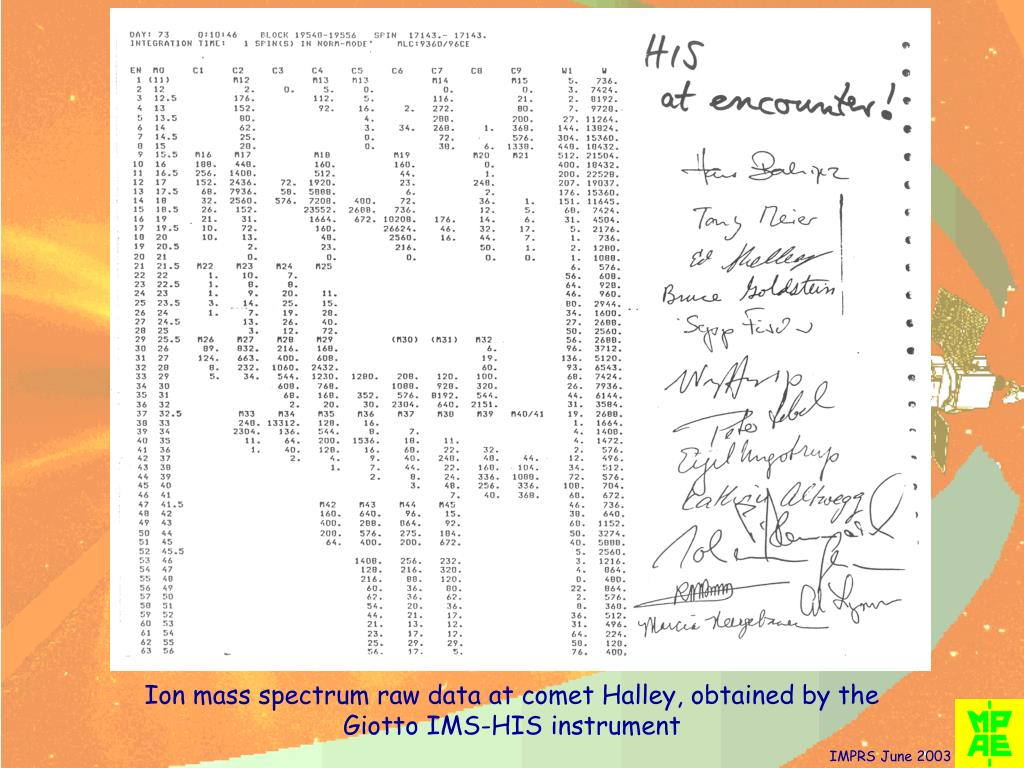 DAY: 73 0:10:46 BLOCK 19540-19556 SPIN 17143.- 17143.
INTEGRATION TIME: 1 SPIN(S) IN NORM-MODE' MLC:9360/96CE
EN MO C1 C2 C3 C4 C5 C6 C7 C8 C9 W1 W
1 (11) M12 M13 M13 M14 M15 5. 736.
2 12 2. 0. 5. 0. 0. 0. 3. 7424.
3 12.5 176. 112. 5. 116. 21. 2. 8192.
4 13 152. 92. 16. 2. 272. 80. 7. 9728.
5 13.5 80. 4. 288. 200. 27. 11264.
6 14 62. 3. 34. 268. 1. 368. 144. 13824.
7 14.5 25. 0. 72. 576. 304. 15360.
8 15 20. 0. 38. 6. 1338. 448. 18432.
9 15.5 M16 M17 M18 M19 M20 M21 512. 21504.
10 16 188. 448. 160. 160. 0. 400. 18432.
11 16.5 256. 1408. 512. 44. 1. 200. 22528.
12 17 152. 2436. 72. 1920. 23. 248. 207. 19037.
13 17.5 68. 7936. 58. 5888. 6. 2. 176. 15360.
14 18 32. 2560. 576. 7208. 400. 72. 36. 1. 151. 11645.
15 18.5 26. 152. 23552. 2688. 736. 12. 5. 68. 7424.
16 19 21. 31. 1664. 672. 10208. 176. 14. 6. 31. 4504.
17 19.5 10. 72. 160. 26624. 46. 32. 17. 5. 2176.
18 20 10. 13. 40. 2560. 16. 44. 7. 1. 736.
19 20.5 2. 23. 216. 50. 1. 2. 1280.
20 21 0. 0. 0. 0. 0. 1. 1088.
21 21.5 M22 M23 M24 M25 6. 576.
22 22 1. 10. 7. 56. 608.
23 22.5 1. 8. 8. 64. 928.
24 23 1. 9. 20. 11. 46. 960.
25 23.5 3. 14. 25. 15. 80. 2944.
26 24 1. 7. 19. 28. 34. 1600.
27 24.5 13. 26. 40. 27. 2688.
28 25 3. 12. 72. 50. 2560.
29 25.5 M26 M27 M28 M29 (M30) (M31) M32 56. 2688.
30 26 89. 832. 216. 168. 6. 96. 3712.
31 27 124. 663. 400. 608. 19. 136. 5120.
32 28 8. 232. 1060. 2432. 60. 93. 6543.
33 29 5. 34. 544. 1230. 1280. 208. 120. 100. 68. 7424.
34 30 608. 768. 1088. 928. 320. 26. 7936.
35 31 68. 168. 352. 576. 8192. 544. 44. 6144.
36 32 2. 20. 30. 2304. 640. 2151. 31. 3584.
37 32.5 M33 M34 M35 M36 M37 M38 M39 M40/41 19. 2688.
38 33 248. 13312. 128. 16. 1. 1664.
39 34 2304. 136. 544. 8. 7. 4. 1408.
40 35 11. 64. 200. 1536. 18. 11. 4. 1472.
41 36 1. 40. 128. 16. 68. 22. 32. 2. 576.
42 37 2. 4. 9. 40. 248. 48. 44. 12. 496.
43 38 1. 7. 44. 22. 168. 104. 34. 512.
44 39 2. 8. 24. 336. 1088. 72. 576.
45 40 3. 48. 256. 336. 108. 704.
46 41 7. 40. 368. 68. 672.
47 41.5 M42 M43 M44 M45 46. 736.
48 42 160. 640. 96. 15. 38. 640.
49 43 400. 288. 864. 92. 60. 1152.
50 44 208. 576. 275. 184. 50. 3274.
51 45 64. 400. 200. 672. 40. 5888.
52 45.5 5. 2560.
53 46 1408. 256. 232. 3. 1216.
54 47 128. 216. 320. 4. 864.
55 48 216. 88. 120. 0. 480.
56 49 60. 36. 80. 22. 864.
57 50 62. 36. 62. 2. 576.
58 51 54. 20. 36. 8. 360.
59 52 44. 21. 17. 36. 512.
60 53 21. 13. 12. 31. 496.
61 54 23. 17. 12. 64. 224.
62 55 25. 29. 29. 50. 128.
63 56 56. 17. 5. 76. 400.
HIS
at encounter!
Hans Balsiger
Tony Meier
Ed Shelley
Bruce Goldstein
Egil Ungstrup
Kathrin Altwegg
Marcia Neugebauer
Ion mass spectrum raw data at comet Halley, obtained by the
Giotto IMS-HIS instrument
IMPRS June 2003
MP
AE